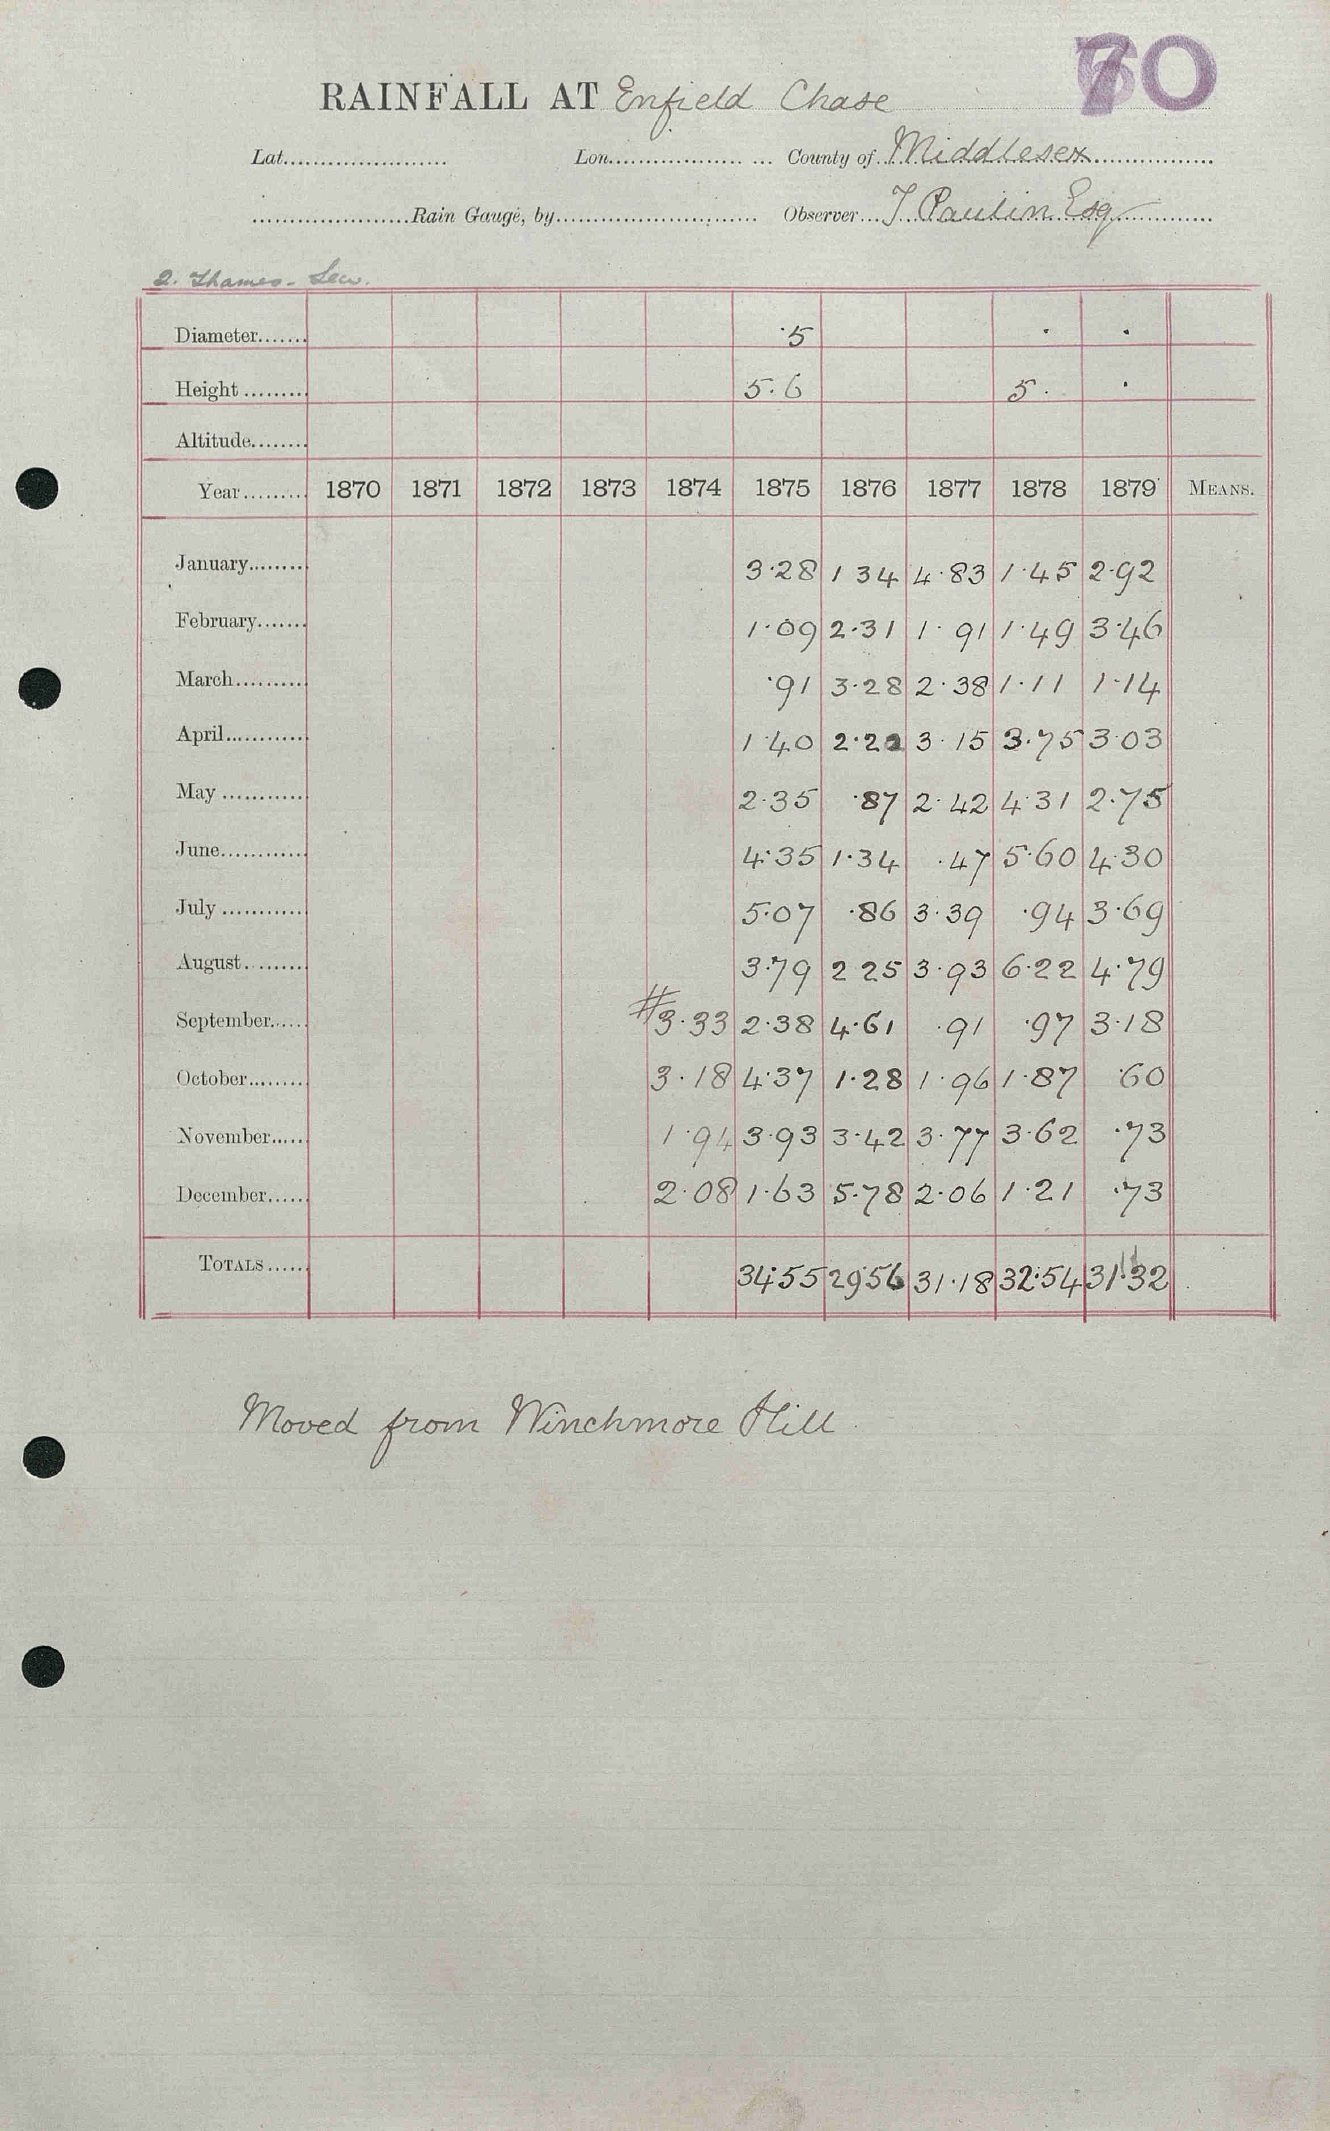 70
RAINFALL AT Enfield Chase
Lat...................... Lon................... ... County of Middlesex
......................Rain Gauge, by............................ Observer... J Paulin Esq
2. Thames - Lea.
Diameter....... ·5 · ·
Height ......... 5.6 5. ·
Altitude........
Year......... 1870 1871 1872 1873 1874 1875 1876 1877 1878 1879 MEANS.
January......... 3·28 1 34 4·83 1·45 2·92
February....... 1·09 2·31 1·91 1·49 3·46
March.......... ·91 3·28 2·38 1·11 1·14
April............ 1·40 2·22 3·15 3·75 3·03
May ............ 2·35 ·87 2·42 4·31 2·75
June............ 4·35 1·34 ·47 5·60 4·30
July ............ 5·07 ·86 3·39 ·94 3·69
August......... 3·79 2 25 3·93 6·22 4·79
September..... #3·33 2·38 4·61 ·91 ·97 3·18
October......... 3·18 4·37 1·28 1·96 1·87 ·60
November..... 1·94 3·93 3·42 3·77 3·62 ·73
December...... 2·08 1·63 5·78 2·06 1·21 ·73
TOTALS...... 34·55 29·56 31·18 32·54 31·32
Moved from Winchmore Hill